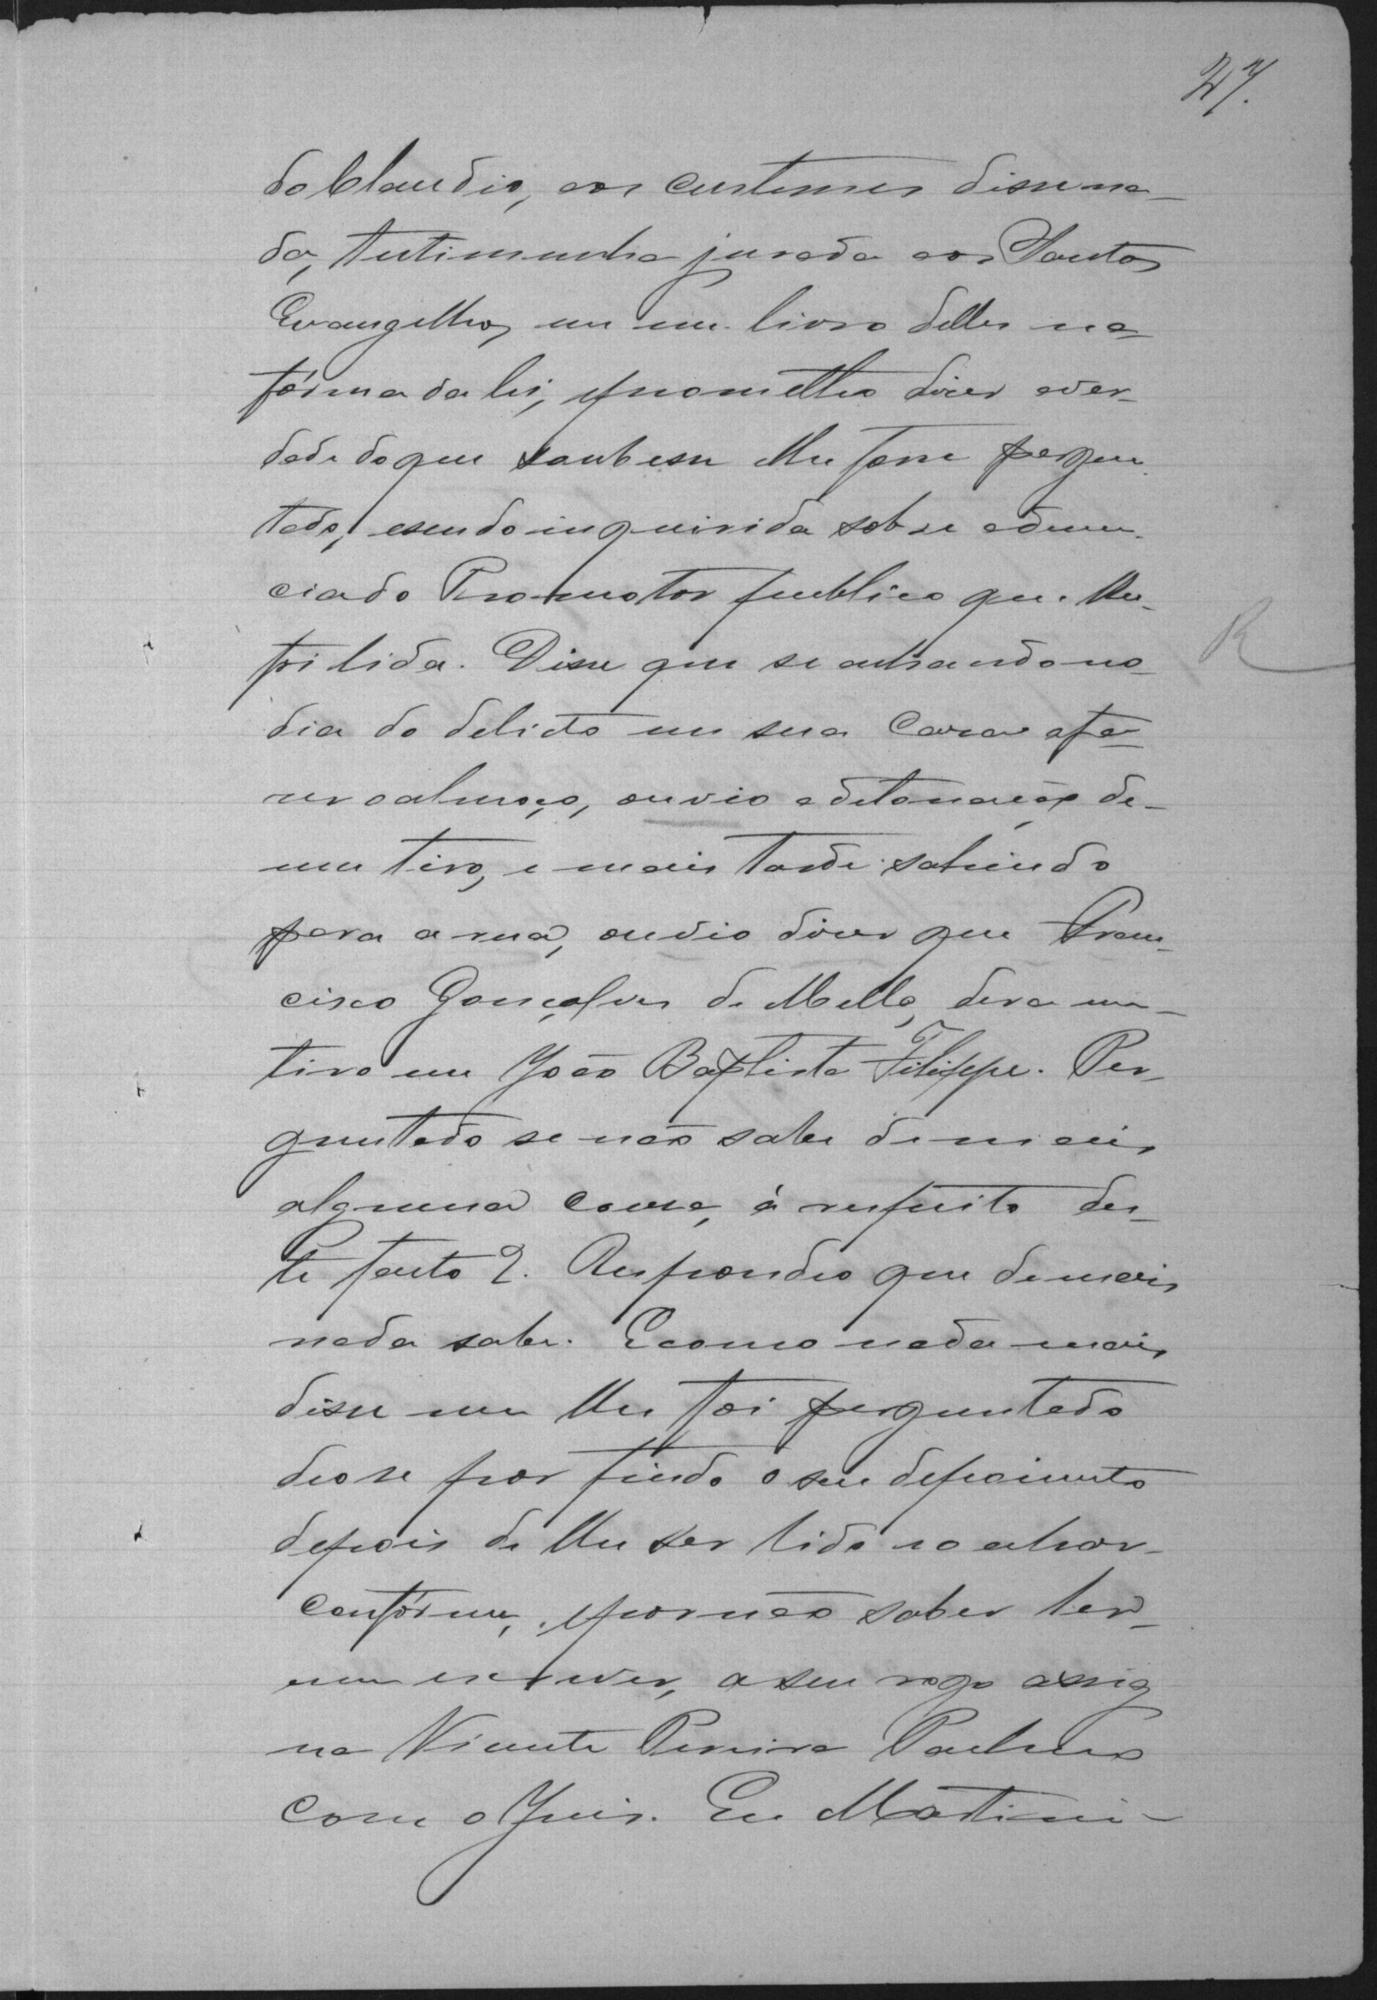 27.
do Claudio, aos custumes disse na-
da, testimunha jurada aos Santos
Evangelhos em um livro delles na
fórma da lei, e prometteo diser a ver-
dade do que soubesse e lhe fosse pergun-
tado, e sendo inquirida sobre a denun-
cia do Promotor publico que lhe
foi lida. Disse que se achando no
dia do delicto em sua casa a fa-
ser o almoço, ouvio a detonação de
um tiro, e mais tarde sahindo
para a rua, ouvio diser que Fran-
cisco Gonçalves de Mello, dera um
tiro em João Baptista Filippe. Per-
guntado se não sabe de mais
alguma cousa, á respeito des-
te facto?. Respondeo que de mais
nada sabe. E como nada mais
disse nem lhe foi perguntado
deo se por findo o seu depoimento
depois de lhe ser lido e o achar
confórme, e por não saber ler
nem escrever, a seu rogo assig
na Vicente Pereira Pacheco
com o Juis. Eu Martini-
R